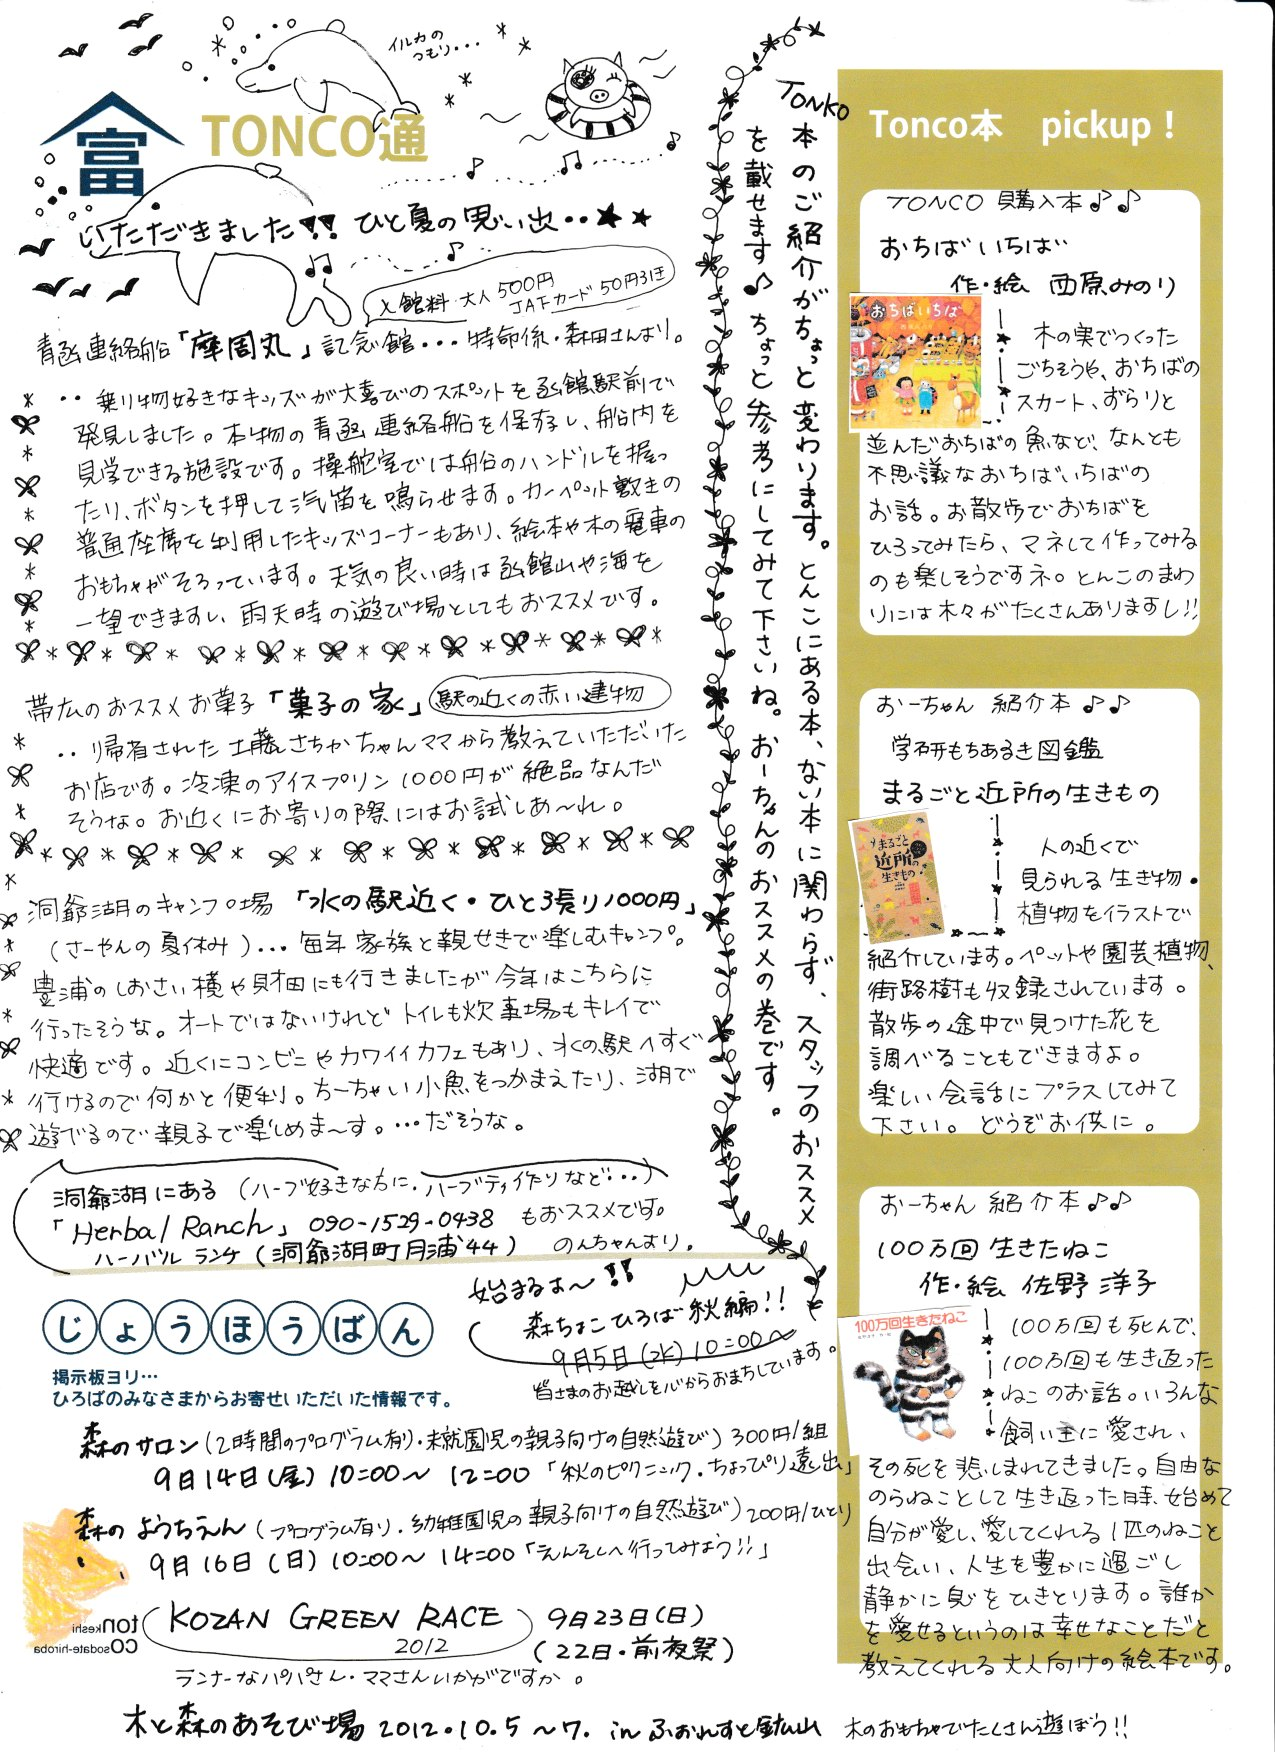 イルカの
つもり・・・
富
TONCO通
いただきました!! ひと夏の思い出・・★★
入館料 大人500円
JAFカード50円引き
青函連絡船「摩周丸」記念館・・・特命係・森田さんより。
・・乗り物好きなキッズが大喜びのスポットを函館駅前で
発見しました。本物の青函連絡船を保存し、船内を
見学できる施設です。操舵室では船のハンドルを握っ
たり、ボタンを押して汽笛を鳴らせます。カーペット敷きの
普通座席を利用したキッズコーナーもあり、絵本や木の電車の
おもちゃがそろっています。天気の良い時は函館山や海を
一望できますし、雨天時の遊び場としてもおススメです。
帯広のおススメお菓子「菓子の家」 駅の近くの赤い建物
・・帰省された工藤さちかちゃんママから教えていただいた
お店です。冷凍のアイスプリン1000円が絶品なんだ
そうな。お近くにお寄りの際にはお試しあ〜れ。
洞爺湖のキャンプ場「水の駅近く・ひと張り1000円」
(さーやんの夏休み)・・・毎年家族と親せきで楽しむキャンプ。
豊浦のしおさい横や財田にも行きましたが今年はこちらに
行ったそうな。オートではないけれどトイレも炊事場もキレイで
快適です。近くにコンビニやカワイイカフェもあり、水の駅へすぐ
行けるので何かと便利。ちーちゃい小魚をつかまえたり、湖で
遊べるので親子で楽しめま〜す。・・・だそうな。
洞爺湖にある(ハーブ好きな方に、ハーブティ作りなど・・・)
「Herbal Ranch」090-1529-0438 もおススメです。
ハーバル ランチ(洞爺湖町月浦44) のんちゃんより。
TONKO
本のご紹介がちょっと変わります。とんこにある本、ない本に関わらず、スタッフのおススメ
を載せます♪ちょっと参考にしてみて下さいね。おーちゃんのおススメの巻です。
Tonco本 pickup!
TONCO 購入本♪♪
おちばいちば
作・絵 西原みのり
おちばいちば
木の実でつくった
ごちそうや、おちばの
スカート、ずらりと
並んだおちばの魚など、なんとも
不思議なおちばいちばの
お話。お散歩でおちばを
ひろってみたら、マネして作ってみる
のも楽しそうですネ。とんこのまわ
りには木々がたくさんありますし!!
おーちゃん 紹介本♪♪
学研もちあるき図鑑
まるごと近所の生きもの
まるごと
近所の
生きもの
人の近くで
見られる生き物・
植物をイラストで
紹介しています。ペットや園芸植物、
街路樹も収録されています。
散歩の途中で見つけた花を
調べることもできますよ。
楽しい会話にプラスしてみて
下さい。どうぞお供に。
おーちゃん 紹介本♪♪
100万回生きたねこ
作・絵 佐野洋子
100万回生きたねこ
100万回も死んで、
100万回も生き返った
ねこのお話。いろんな
飼い主に愛され、
その死を悲しまれてきました。自由な
のらねことして生き返った時、始めて
自分が愛し、愛してくれる1匹のねこと
出会い、人生を豊かに過ごし
静かに息をひきとります。誰か
を愛せるというのは幸せなことだと
教えてくれる大人向けの絵本です。
始まるよ〜!!
森ちょこひろば秋編!!
9月5日(水)10:00〜
皆さまのお越しを心からおまちしています。
じょうほうばん
掲示板ヨリ…
ひろばのみなさまからお寄せいただいた情報です。
森のサロン(2時間のプログラム有り・未就園児の親子向けの自然遊び)300円/組
9月14日(金)10:00〜12:00「秋のピクニック・ちょっぴり遠出」
森のようちえん(プログラム有り・幼稚園児の親子向けの自然遊び)200円/ひとり
9月16日(日)10:00〜14:00「えんそくへ行ってみよう!!」
tonkeshi
COsodate-hiroba
KOZAN GREEN RACE
2012
9月23日(日)
(22日・前夜祭)
ランナーなパパさん・ママさんいかがですか。
木と森のあそび場 2012.10.5〜7. in ふぉれすと鉱山 木のおもちゃでたくさん遊ぼう!!